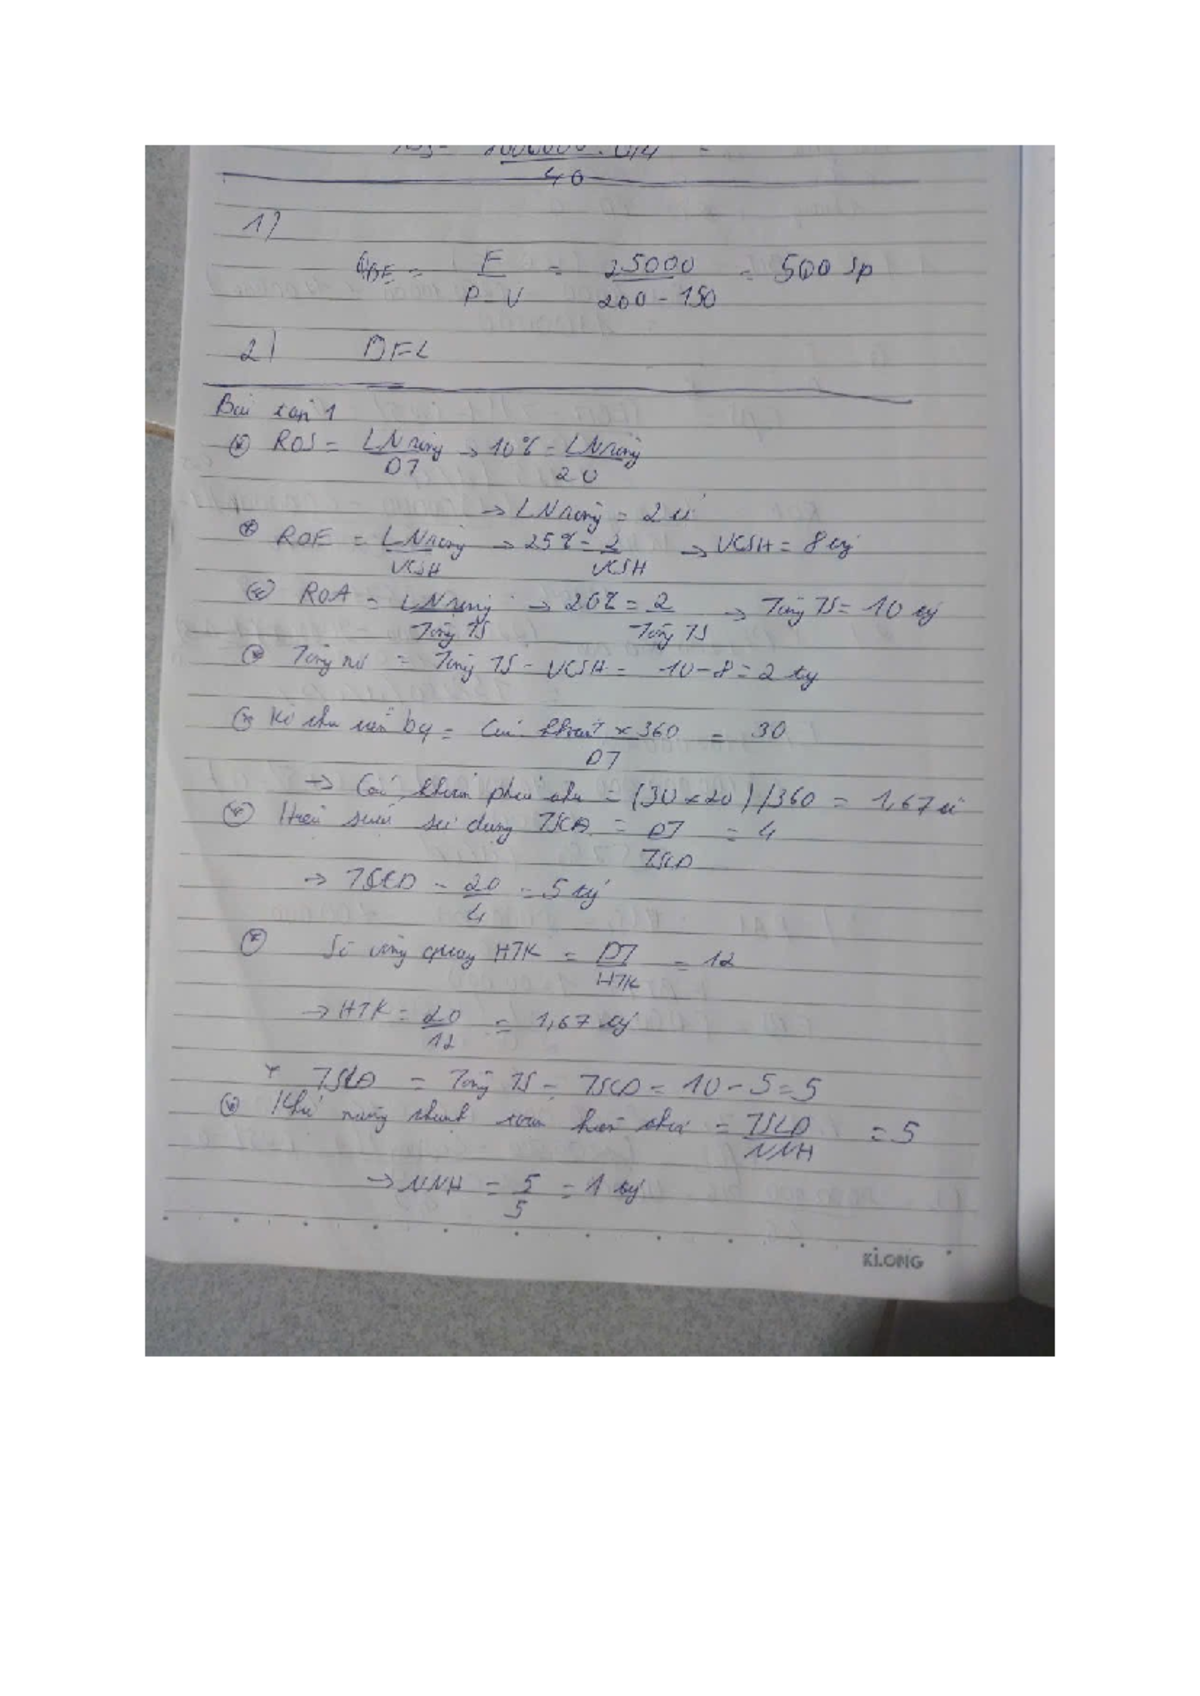 1000000 . 0,4 =
40
1)
QBE = F / P - V = 25000 / 200 - 150 = 500 sp
2) DFL
Bài tập 1
* ROS = LN ròng / DT → 10% = LN ròng / 20
→ LN ròng = 2 tỉ
* ROE = LN ròng / VCSH → 25% = 2 / VCSH → VCSH = 8 tỷ
* ROA = LN ròng / Tổng TS → 20% = 2 / Tổng TS → Tổng TS = 10 tỷ
* Tổng nợ = Tổng TS - VCSH = 10 - 8 = 2 tỷ
* Kì thu tiền bq = Các khoản × 360 / DT = 30
→ Các khoản phải thu = (30 × 20) / 360 = 1,67 tỉ
* Hiệu suất sử dụng TSCĐ = DT / TSCĐ = 4
→ TSCĐ = 20 / 4 = 5 tỷ
* Số vòng quay HTK = DT / HTK = 12
→ HTK = 20 / 12 = 1,67 tỷ
* TSLĐ = Tổng TS - TSCĐ = 10 - 5 = 5
* Khả năng thanh toán hiện thời = TSLĐ / NNH = 5
→ NNH = 5 / 5 = 1 tỷ
KLONG